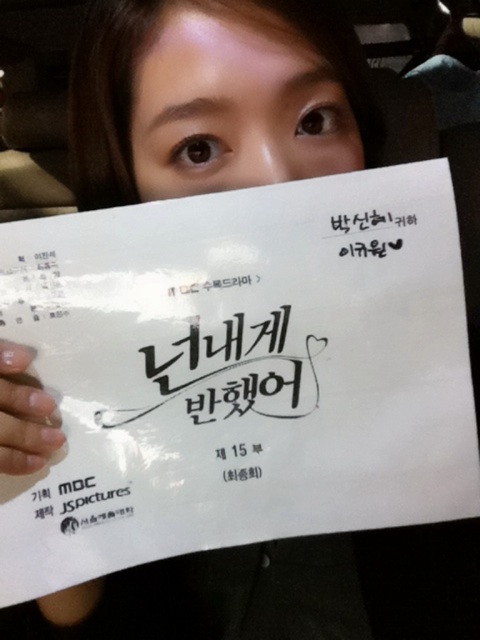 박신혜 귀하
이규원♥
획 이진석
MBC 수목드라마 >
넌 내게
반했어
제 15 부
(최종회)
기획 MBC
제작 JSpictures